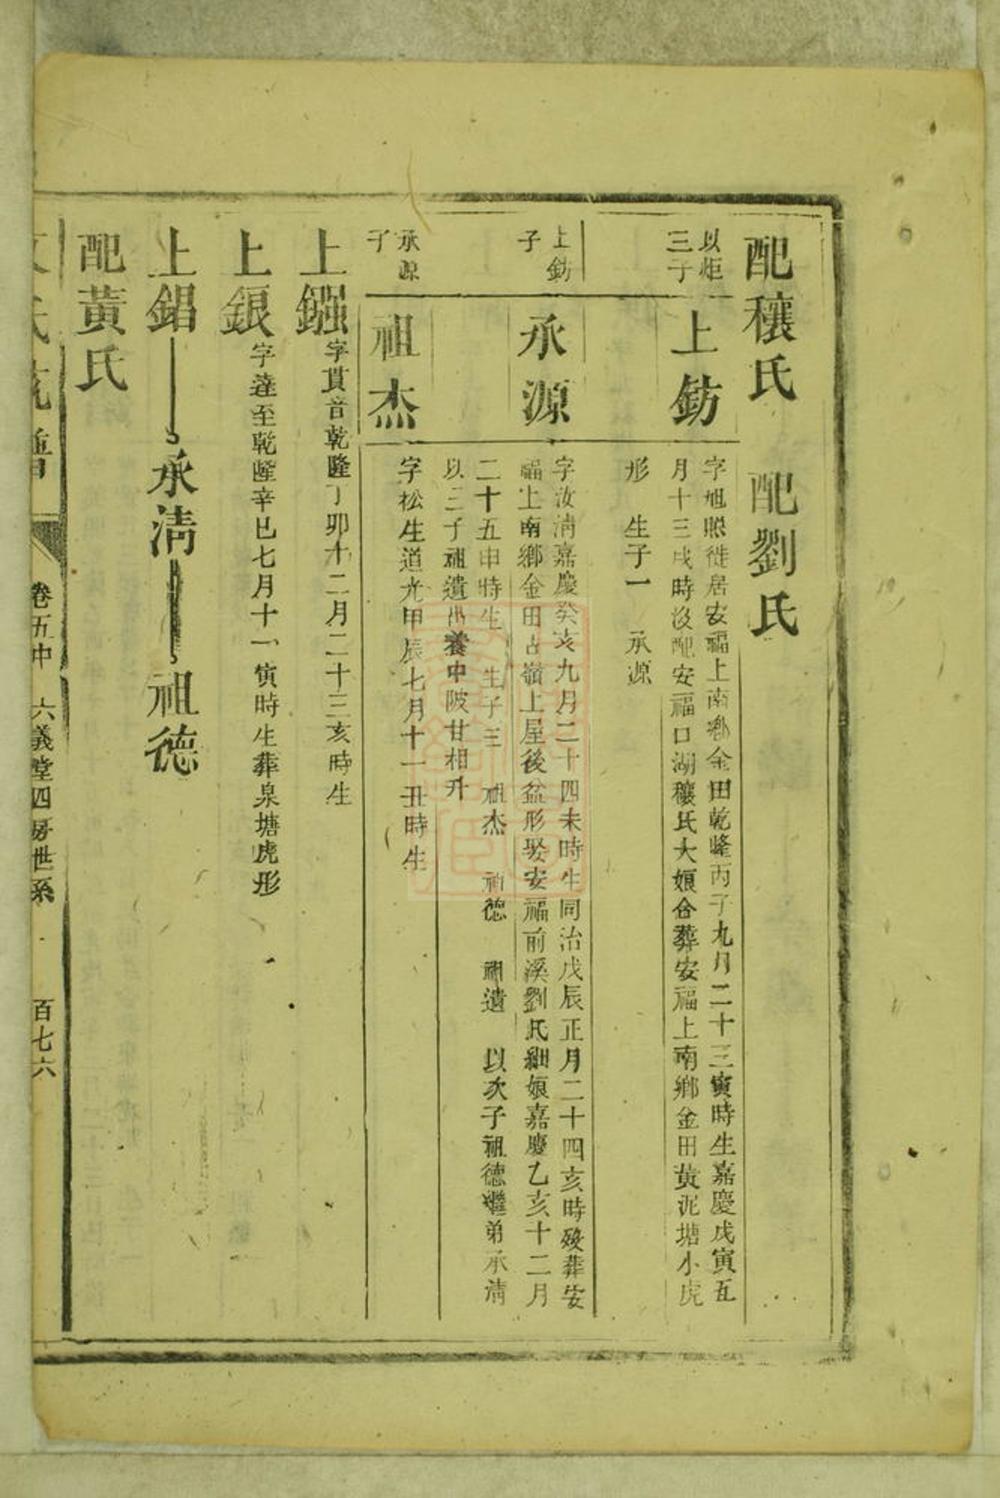 配穰氏　配劉氏
以炬
三子
上鈁
字旭熙徙居安福上南鄉金田乾隆丙子九月二十三寅時生嘉慶戊寅五
月十三戌時沒配安福口湖穰氏大娘合葬安福上南鄉金田黃泥塘小虎
形　生子一　承源
上鈁
子
承源
字汝清嘉慶癸亥九月二十四未時生同治戊辰正月二十四亥時歿葬安
福上南鄉金田古嶺上屋後盆形娶安福前溪劉氏細娘嘉慶乙亥十二月
二十五申時生　生子三　祖杰　祖德　祖遺　以次子祖德繼弟承清
以三子祖遺出養中陂甘相升
承源
子
祖杰
字松生道光甲辰七月十一丑時生
上鏹字貫音乾隆丁卯十二月二十三亥時生
上鋃字達至乾隆辛巳七月十一寅時生葬泉塘虎形
上錩　承清　祖德
配黃氏
氏
譜
卷五中　六義堂四房世系　百七六